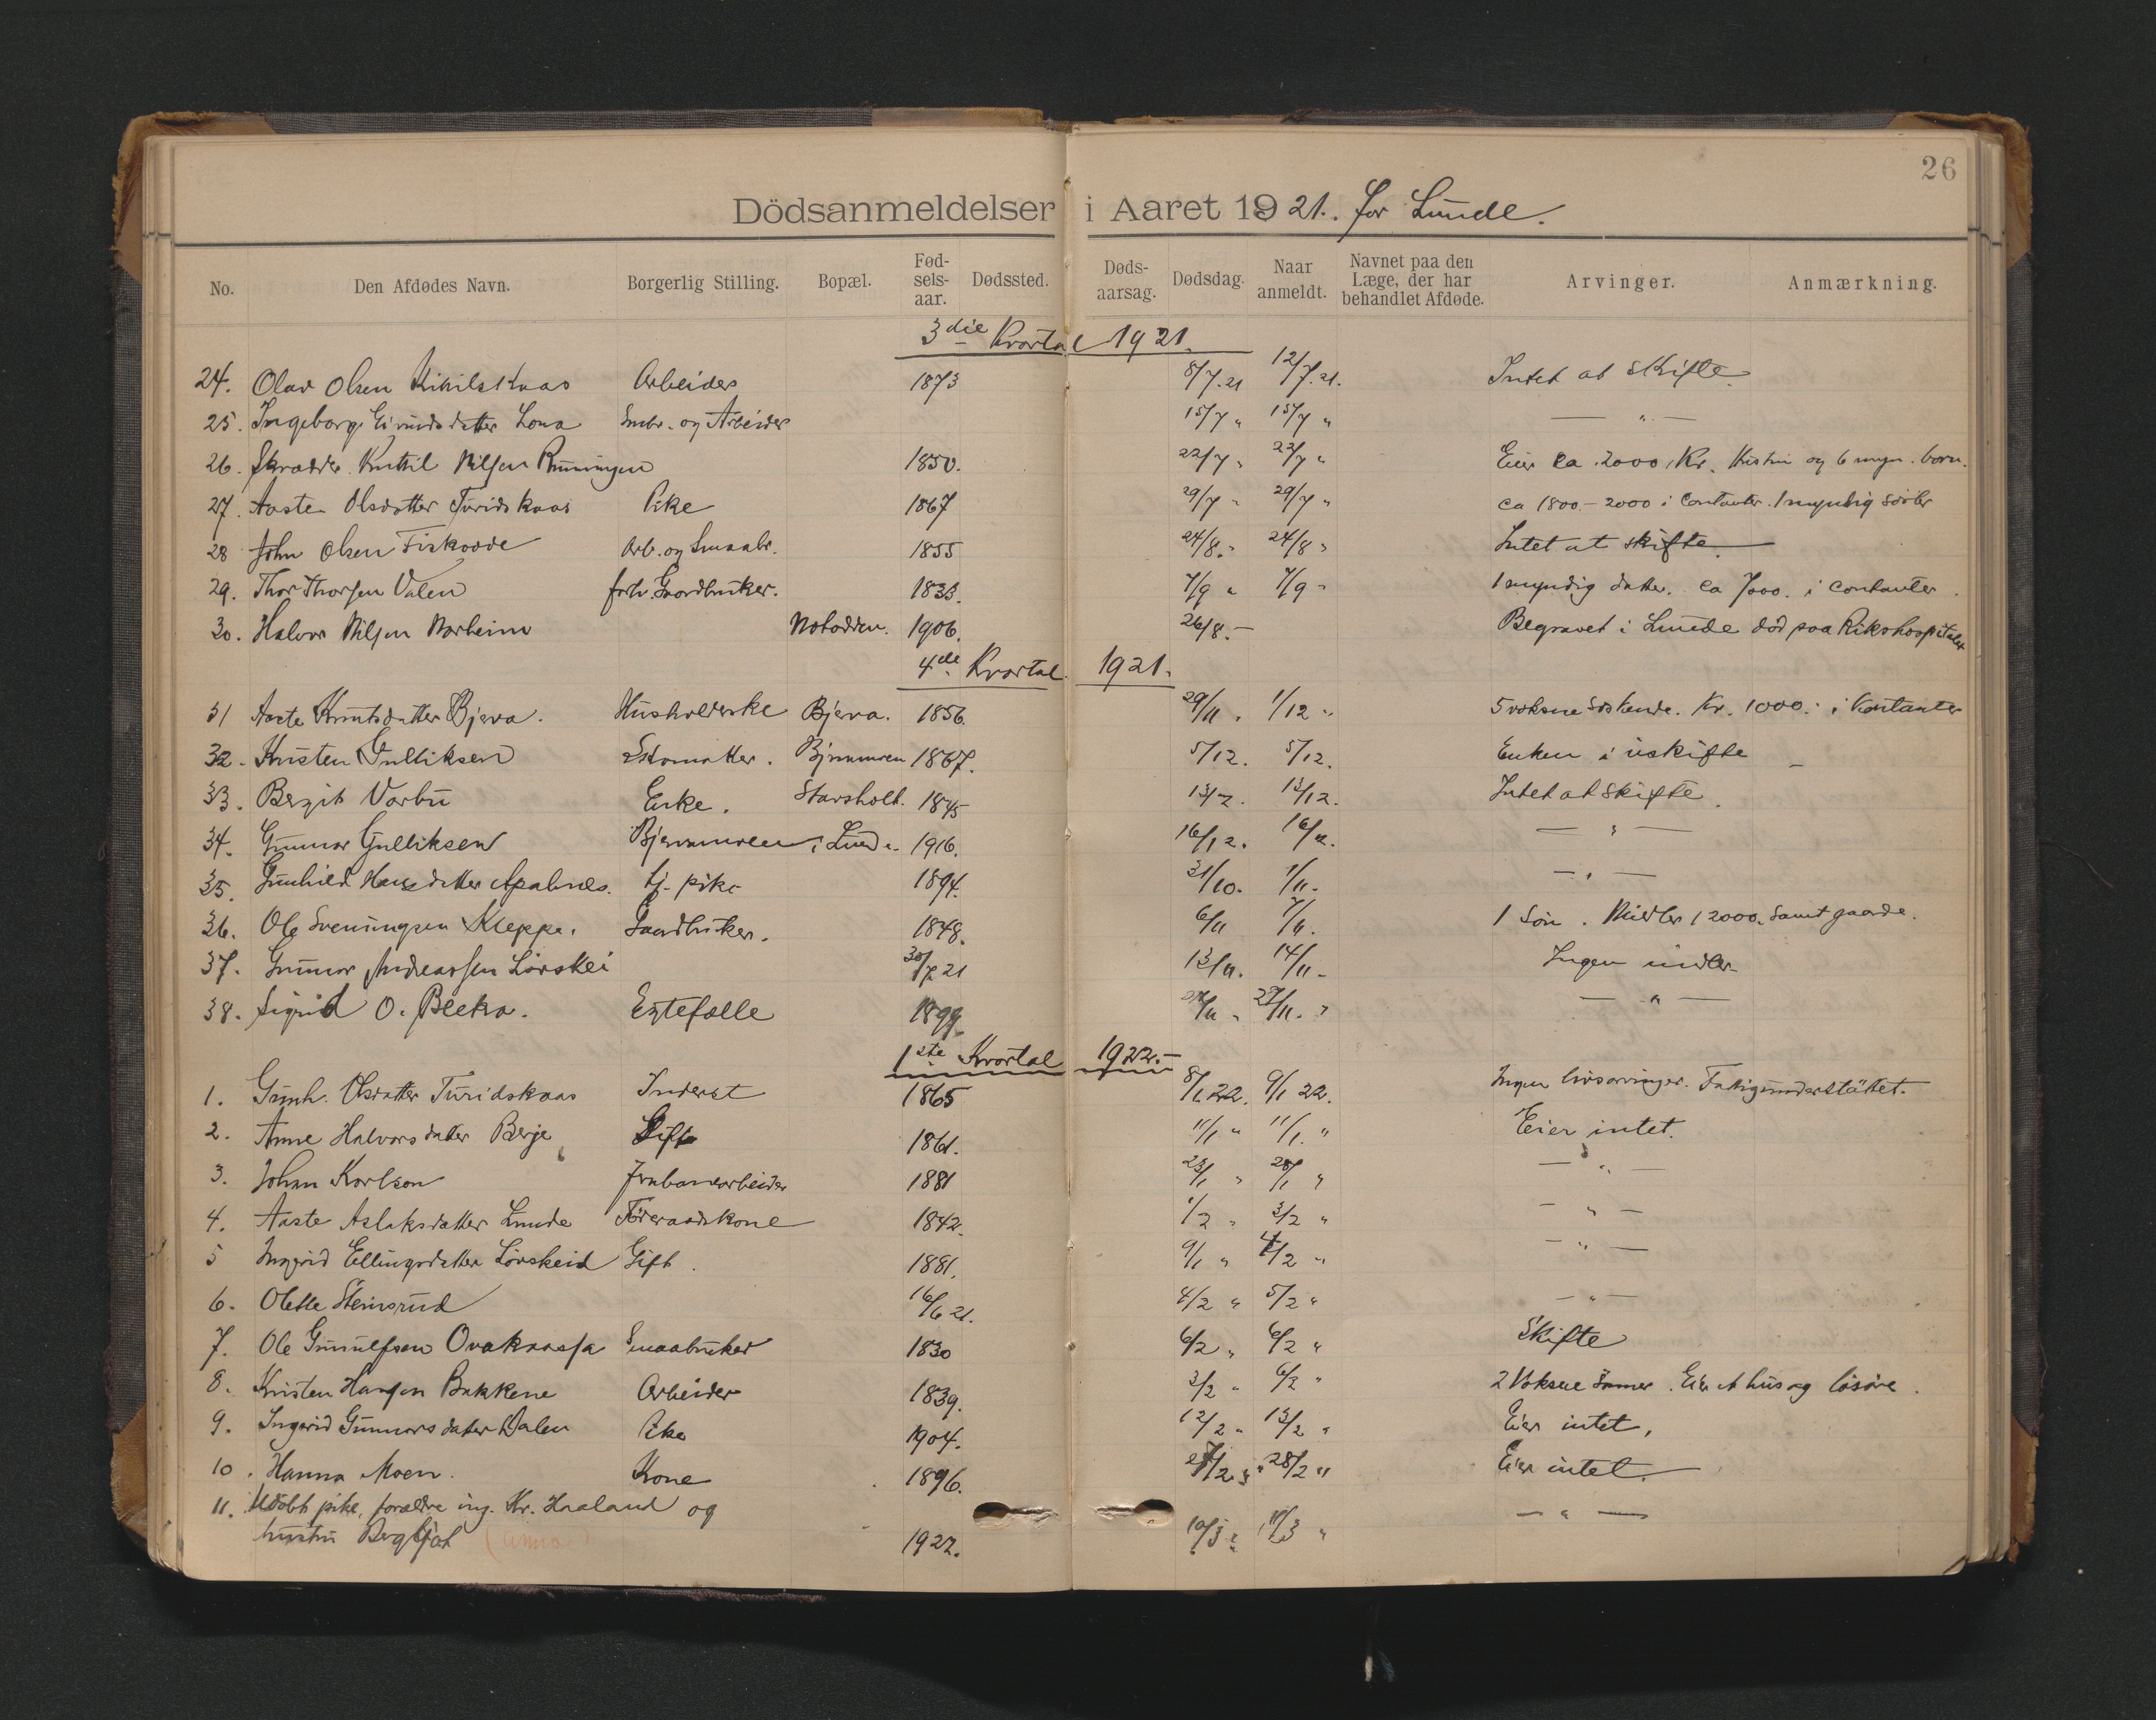 26
Dödsanmeldelser i Aaret 1921. for Lunde.
No. Den Afdødes Navn. Borgerlig Stilling. Bopæl. Fød-sels-aar. Dødssted. Døds-aarsag. Dødsdag. Naar anmeldt. Navnet paa den Læge, der har behandlet Afdøde. Arvinger. Anmærkning.
3die Kvartal 1921.
24. Olav Olsen Kikilskaas Arbeider 1873 8/7.21 12/7.21. Intet at skifte
25. Ingeborg Eivindsdatter Lona Smbr. og Arbeider 15/7 " 15/7 " — " —
26. Skrædder Kittil Nilsen Rinningen 1850. 22/7 " 22/7 " Eier ca. 2000 Kr. Hustru og 6 myn. born.
27. Aaste Olsdatter Turidskaas Pike 1867 29/7 " 29/7 " ca 1800.- 2000 i Contanter. 1 myndig
28 John Olsen Fiskodde Arb. og Smaabr. 1855 24/8. " 24/8 " Intet at skifte.
29. Thor Thorsen Valen forh. Gaardbruker. 1833. 7/9 " 7/9 " 1 myndig datter. ca 7000. i contanter.
30. Halvor Nilsen Norheim Notodden. 1906. 26/8. - Begravet i Lunde død paa Rikshospitalet
4de Kvartal 1921.
31 Aaste Knutsdatter Bjerva. Husholderske Bjerva. 1856. 29/11 " 1/12 " 5 voksne Søskende. Kr. 1000.- i Kontanter
32. Kristen Gulliksen Skomaker. 1867. 5/12. 5/12. Enken i uskifte
33. Bergit Vorbu Enke. Stavsholt. 1845 13/12. 13/12. Intet at skifte.
34. Gunnar Gulliksen Bjervamoen i Lunde. 1916. 16/12. 16/12. — " —
35. Gunhild Hansdatter Apalnes. tj. pike 1894. 31/10. 1/11. — " —
36. Ole Sveinungsen Kleppe. Gaardbruker. 1848. 6/11 7/11. 1 Søn. Midler 12000. samt gaarde.
37. Gunnar Andreassen Lørskei 30/7 21 13/11. 14/11. Ingen midler
38. Sigrid O. Bleka. Egtefælle 1899. 27/11. " — " —
1ste Kvartal 1922.-
1. Gunh. Olsdatter Turidskaas Inderst 1865 8/1 22. 9/1 22. Ingen livsarvinger. Fatigunderstøttet.
2. Anne Halvorsdatter Berje Gift 1861. 11/1 " 11/1. " Eier intet.
3. Johan Karlson Jernbanearbeider 1881 23/1 " 28/1 " — " —
4. Aaste Aslaksdatter Lunde Føderaadskone 1842. 1/2 " 3/2 " — " —
5 Ingerid Ellingsdatter Lørskeid Gift. 1881. 9/1 " 4/2 " — " —
6. Olette Steinsrud 16/6 21. 4/2 " 5/2 " — " —
7. Ole Gunulfsen Ovakaasa Smaabruker 1830 6/2 " 6/2 " Skifte
8. Kristen Hansen Bakkene Arbeider 1839. 3/2 " 6/2 " 2 Voksne Sønner. Eier et hus og løsøre.
9. Ingerid Gunnarsdatter Dalen Pike 1904. 12/2 " 13/2 " Eier intet.
10. Hanna Moen. Kone 1896. 27/2 " 28/2 " Eier intet.
11. Udøbt pike, forældre ing. Kr. Haaland og — " —
hustru Bergljot 1922. 10/3 " 11/3 "